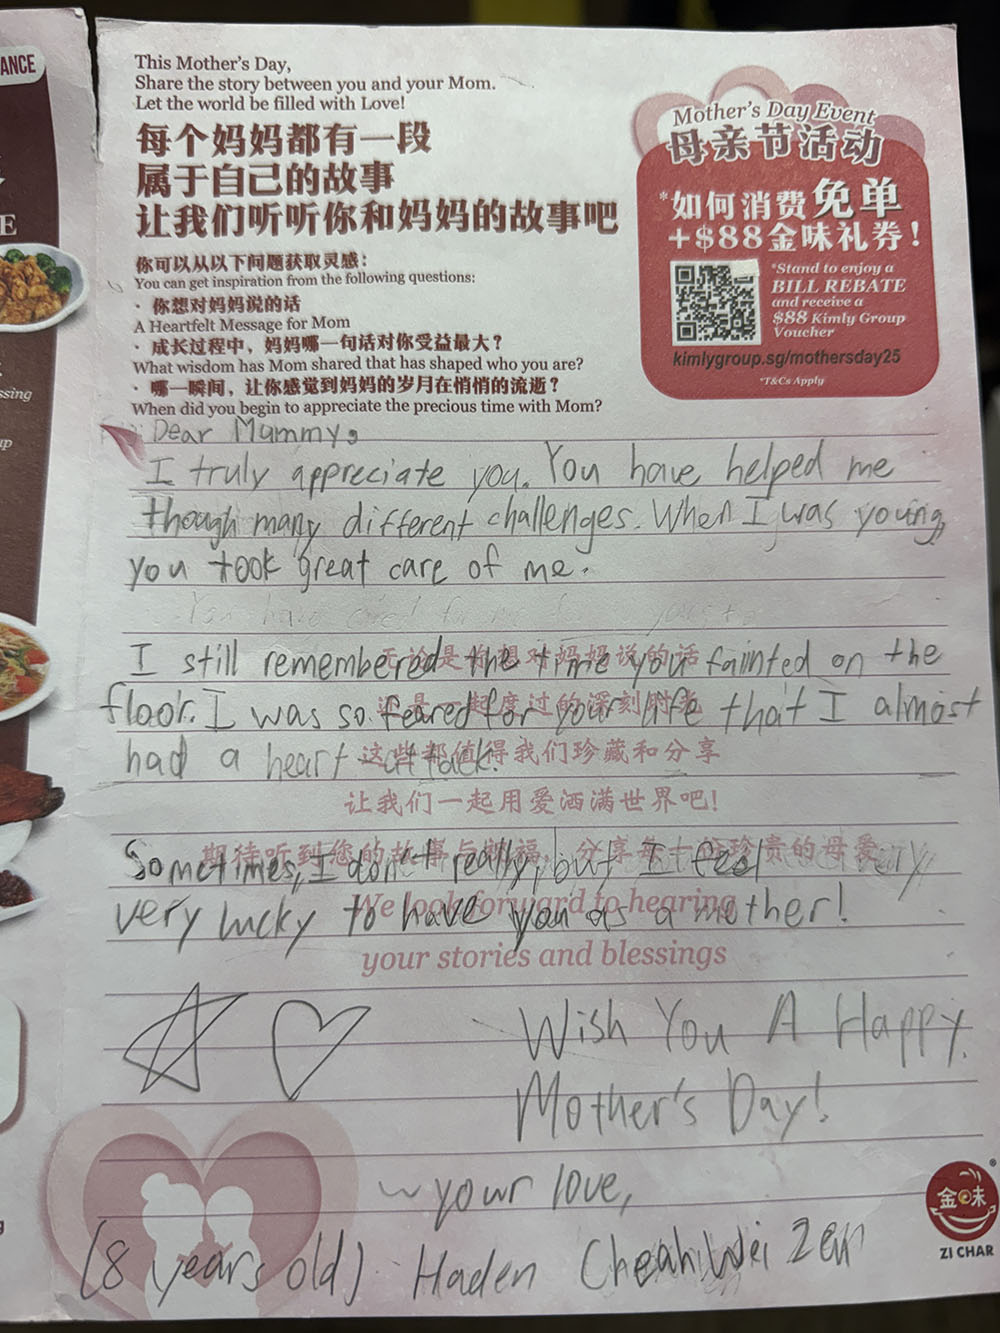 ANCE
E
ssing
up
This Mother's Day,
Share the story between you and your Mom.
Let the world be filled with Love!
每个妈妈都有一段
属于自己的故事
让我们听听你和妈妈的故事吧
你可以从以下问题获取灵感：
You can get inspiration from the following questions:
· 你想对妈妈说的话
A Heartfelt Message for Mom
· 成长过程中，妈妈哪一句话对你受益最大？
What wisdom has Mom shared that has shaped who you are?
· 哪一瞬间，让你感觉到妈妈的岁月在悄悄的流逝？
When did you begin to appreciate the precious time with Mom?
Mother's Day Event
母亲节活动
*如何消费免单
+$88金味礼券！
*Stand to enjoy a
BILL REBATE
and receive a
$88 Kimly Group
Voucher
kimlygroup.sg/mothersday25
*T&Cs Apply
Dear Mummy,
I truly appreciate you. You have helped me
though many different challenges. When I was young,
you took great care of me.
You have
I still remembered the time you fainted on the
无论是你想对妈妈说的话
floor. I was so feared for your life that I almost
还是一起度过的深刻时光
had a heart attack.
这些都值得我们珍藏和分享
让我们一起用爱洒满世界吧！
Sometimes, I don't really, but I feel very
期待听到您的故事与祝福，分享每一份珍贵的母爱
very lucky to have you as a mother!
We look forward to hearing
your stories and blessings
Wish You A Happy
Mother's Day!
~ your love,
(8 years old) Haden Cheah Wei Zen
金味
®
ZI CHAR